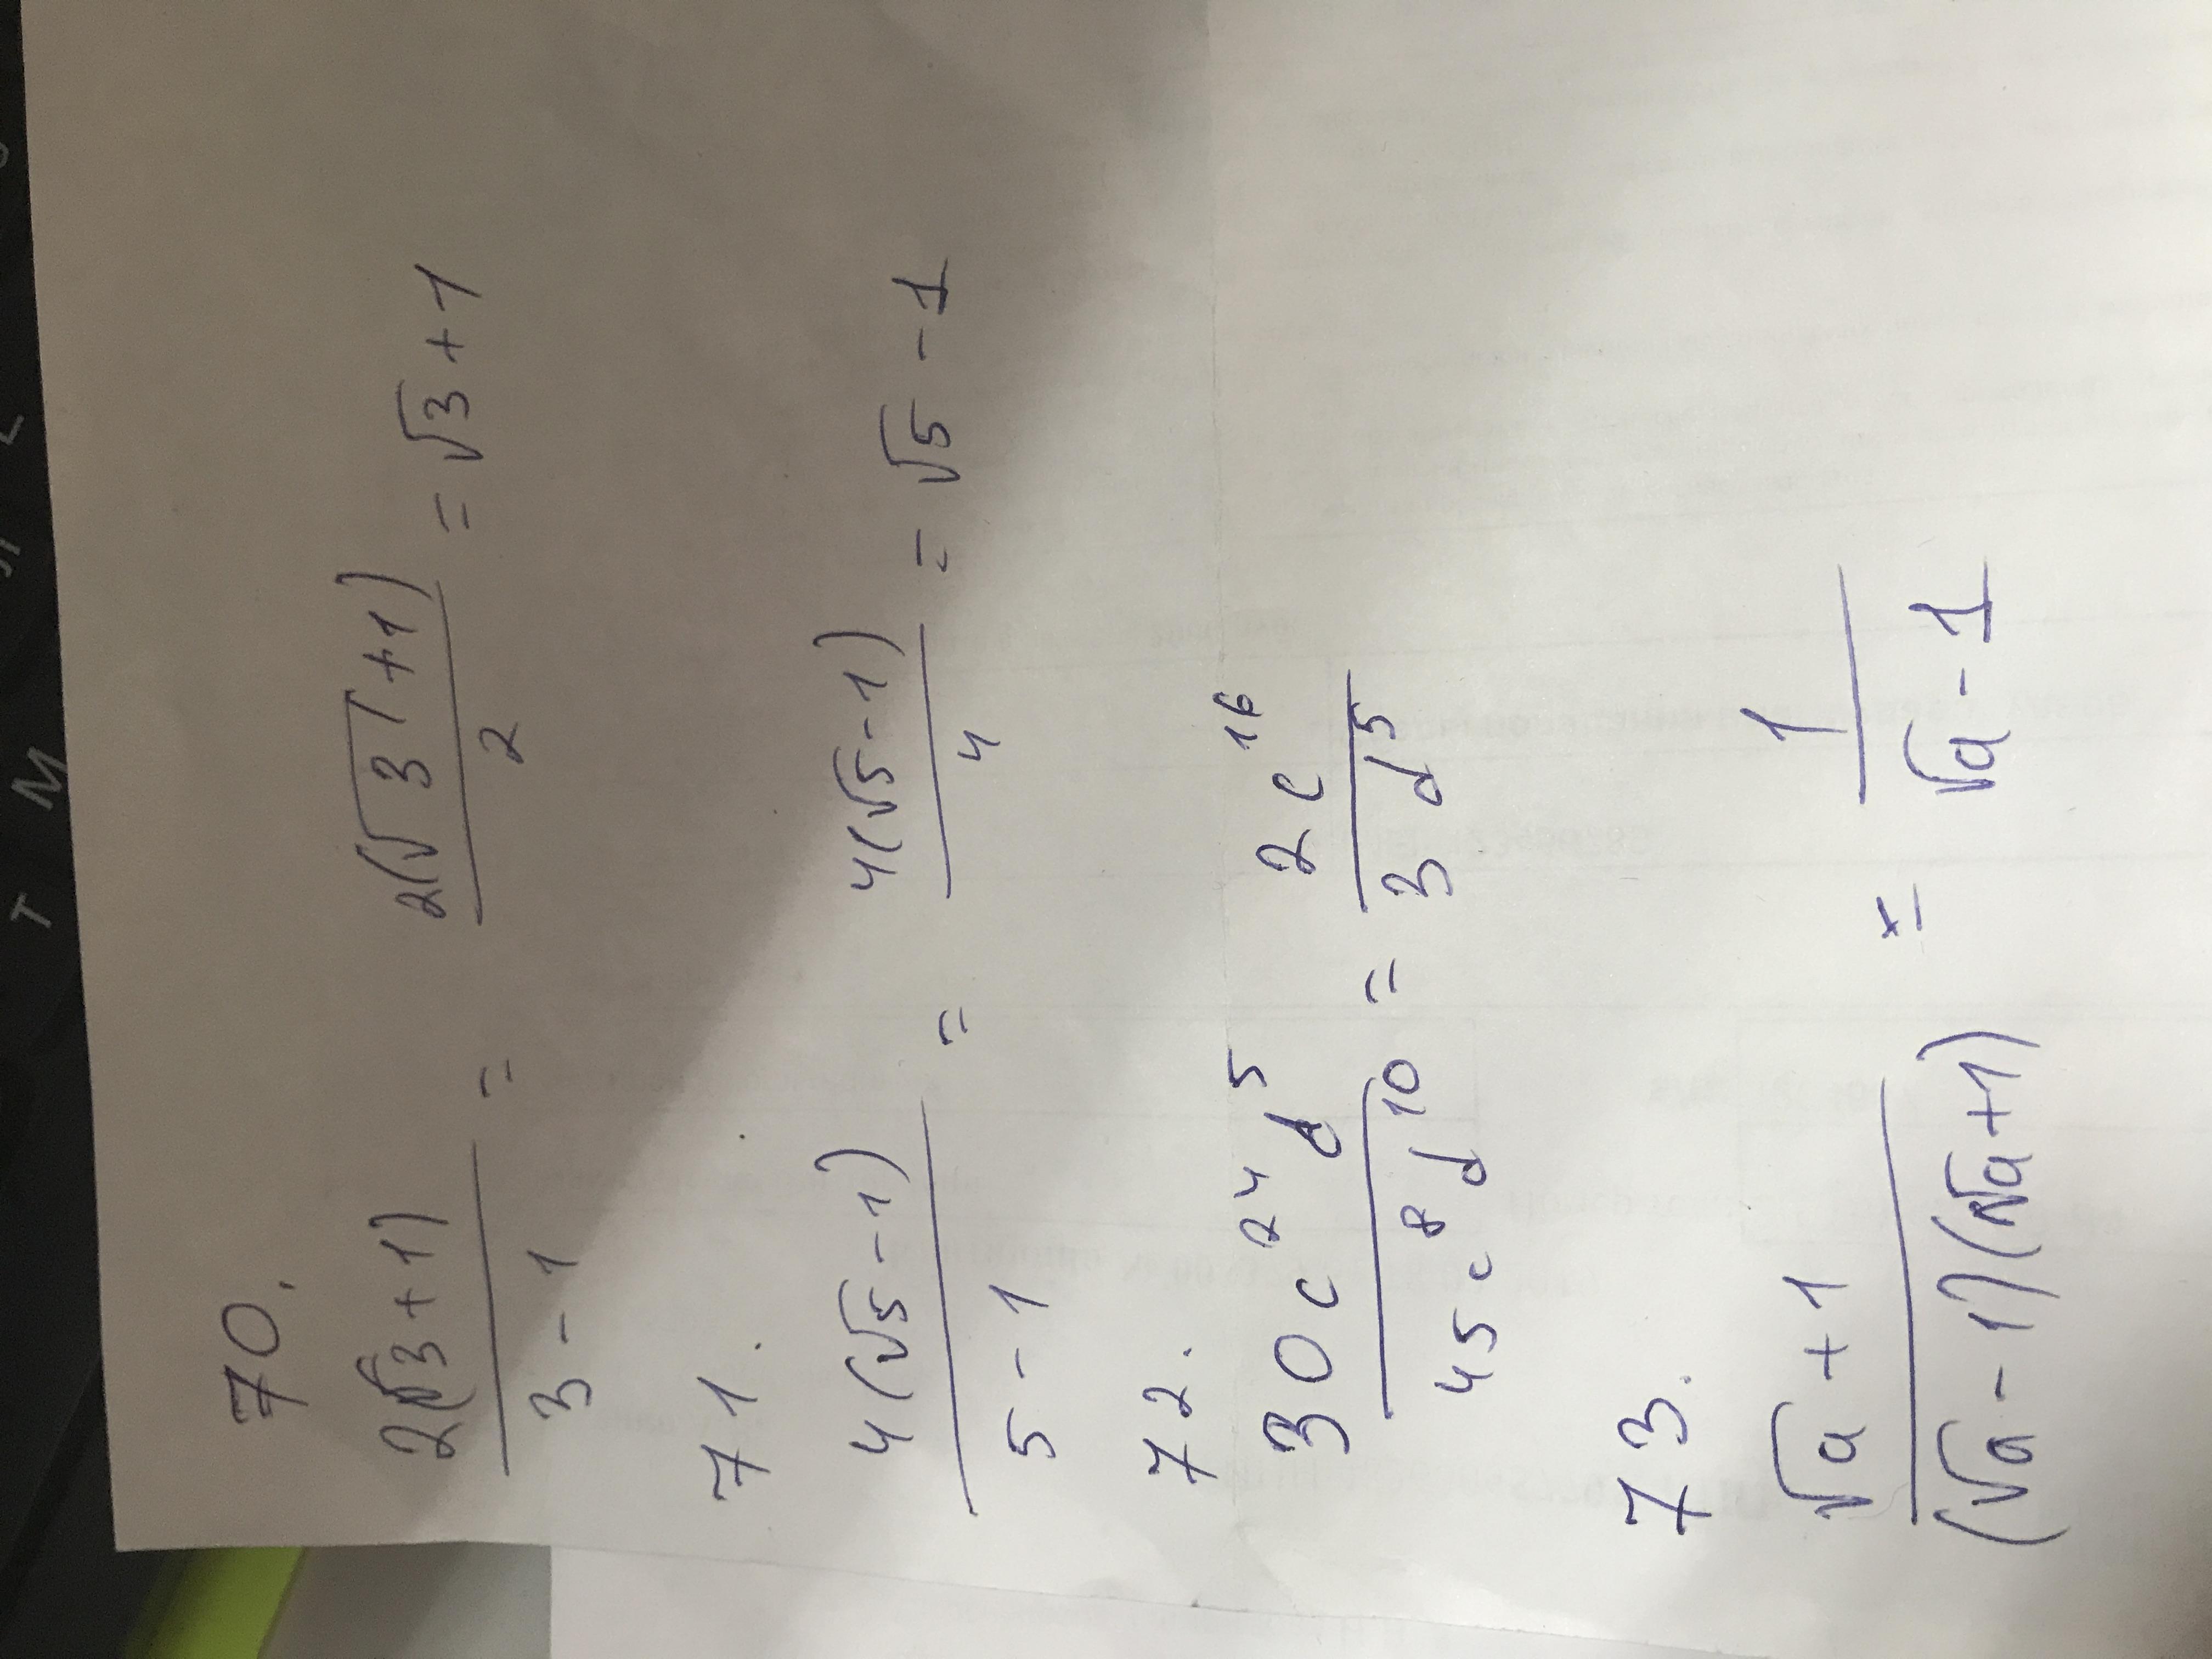 70.
2(√3+1)/(3-1) = 2(√3+1)/2 = √3+1
71.
4(√5-1)/(5-1) = 4(√5-1)/4 = √5-1
72.
30c^24 d^5/(45c^8 d^10) = 2c^16/(3d^5)
73.
(√a+1)/((√a-1)(√a+1)) = 1/(√a-1)
T M